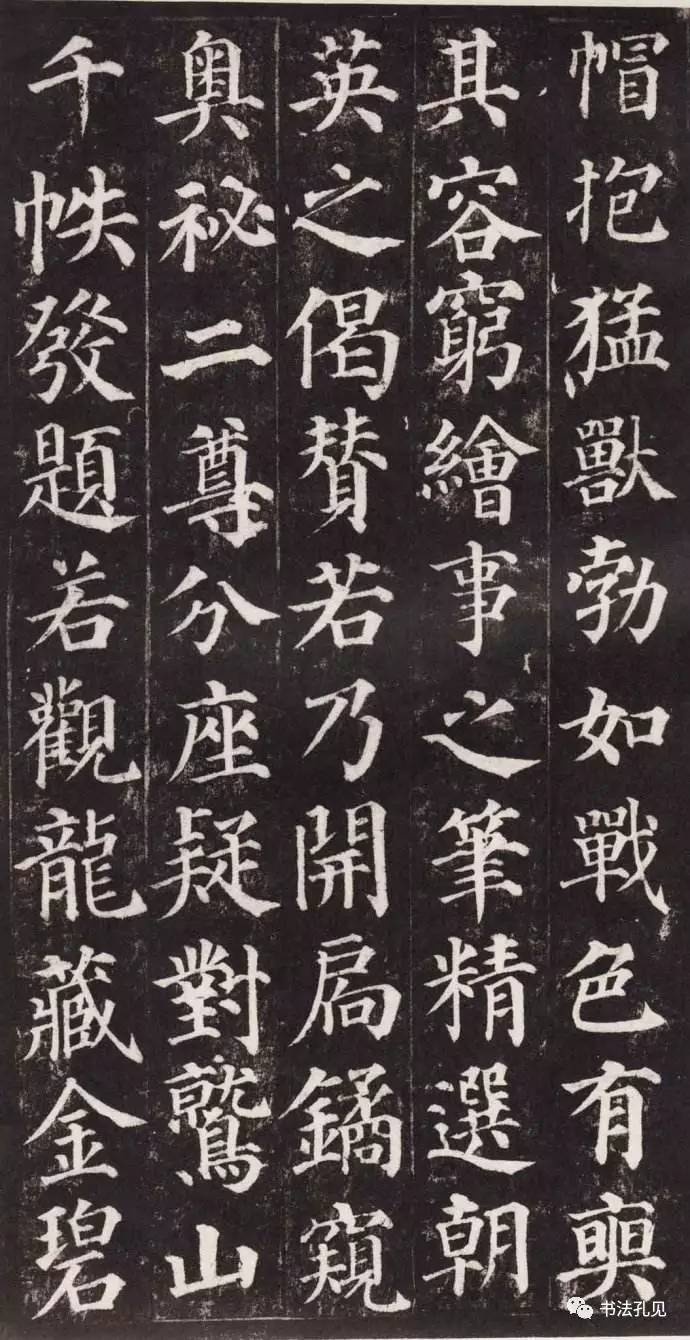 帽抱猛獸勃如戰色有奭
其容窮繪事之筆精選朝
英之偈贊若乃開扃鐍窺
奧秘二尊分座疑對鷲山
千帙發題若觀龍藏金碧
书法孔见